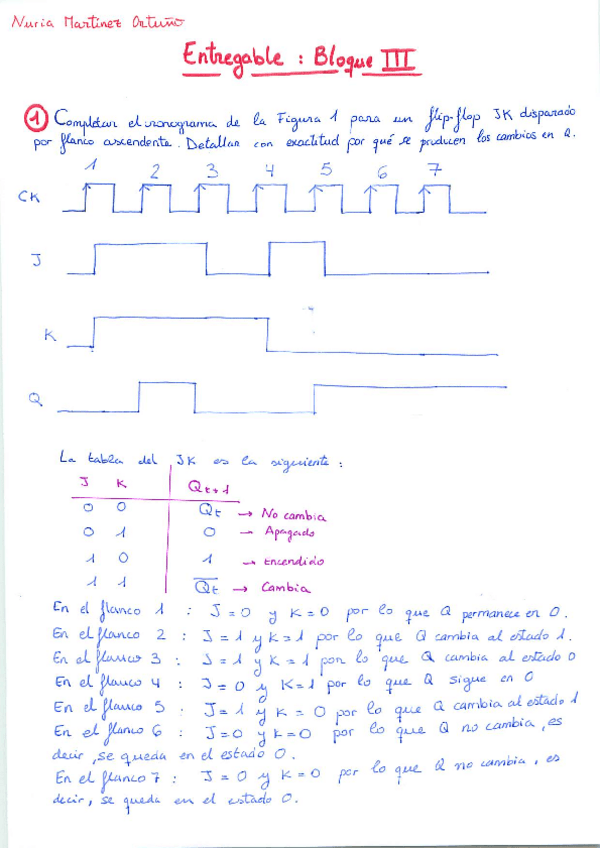 Nuria Martinez Ortuño
Entregable : Bloque III
1 Completar el cronograma de la Figura 1 para un flip-flop JK disparado
por flanco ascendente. Detallar con exactitud por qué se producen los cambios en Q.
1 2 3 4 5 6 7
CK
J
K
Q
La tabla del JK es la siguiente :
J K Qt+1
0 0 Qt → No cambia
0 1 0 → Apagado
1 0 1 → Encendido
1 1 Q̅t → Cambia
En el flanco 1 : J = 0 y K = 0 por lo que Q permanece en 0.
En el flanco 2 : J = 1 y K = 1 por lo que Q cambia al estado 1.
En el flanco 3 : J = 1 y K = 1 por lo que Q cambia al estado 0
En el flanco 4 : J = 0 y K = 1 por lo que Q sigue en 0
En el flanco 5 : J = 1 y K = 0 por lo que Q cambia al estado 1
En el flanco 6 : J = 0 y K = 0 por lo que Q no cambia, es
decir, se queda en el estado 0.
En el flanco 7 : J = 0 y K = 0 por lo que Q no cambia, es
decir, se queda en el estado 0.